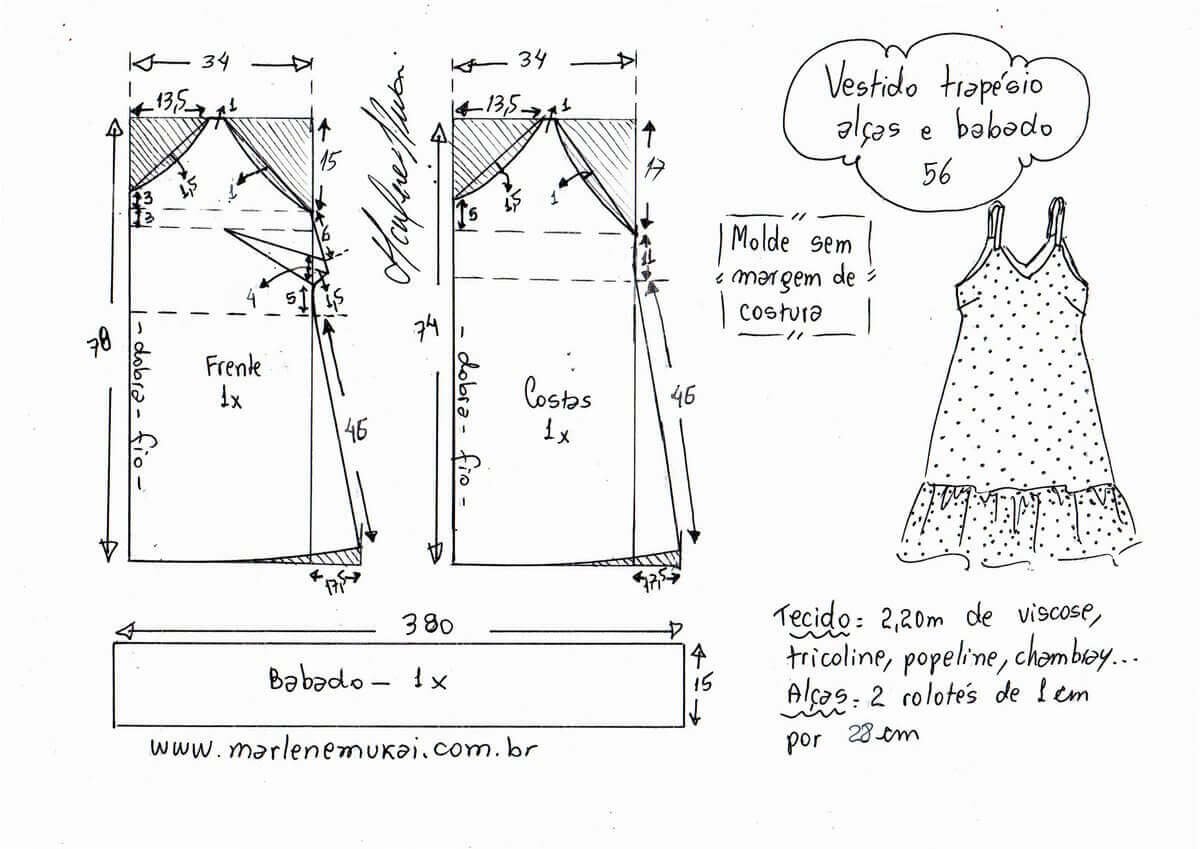 34
13,5
1
15
1,5
1
3
3
6
4
5
1,5
78
- dobra - fio -
Frente
1x
46
17,5
34
13,5
1
17
1,5
1
5
11
74
- dobra - fio -
Costas
1x
46
17,5
Vestido trapésio
alças e babado
56
Molde sem
margem de
costura
380
Babado - 1x
15
www.marlenemukai.com.br
Tecido: 2,20m de viscose,
tricoline, popeline, chambray...
Alças: 2 rolotés de 1 cm
por 28 cm